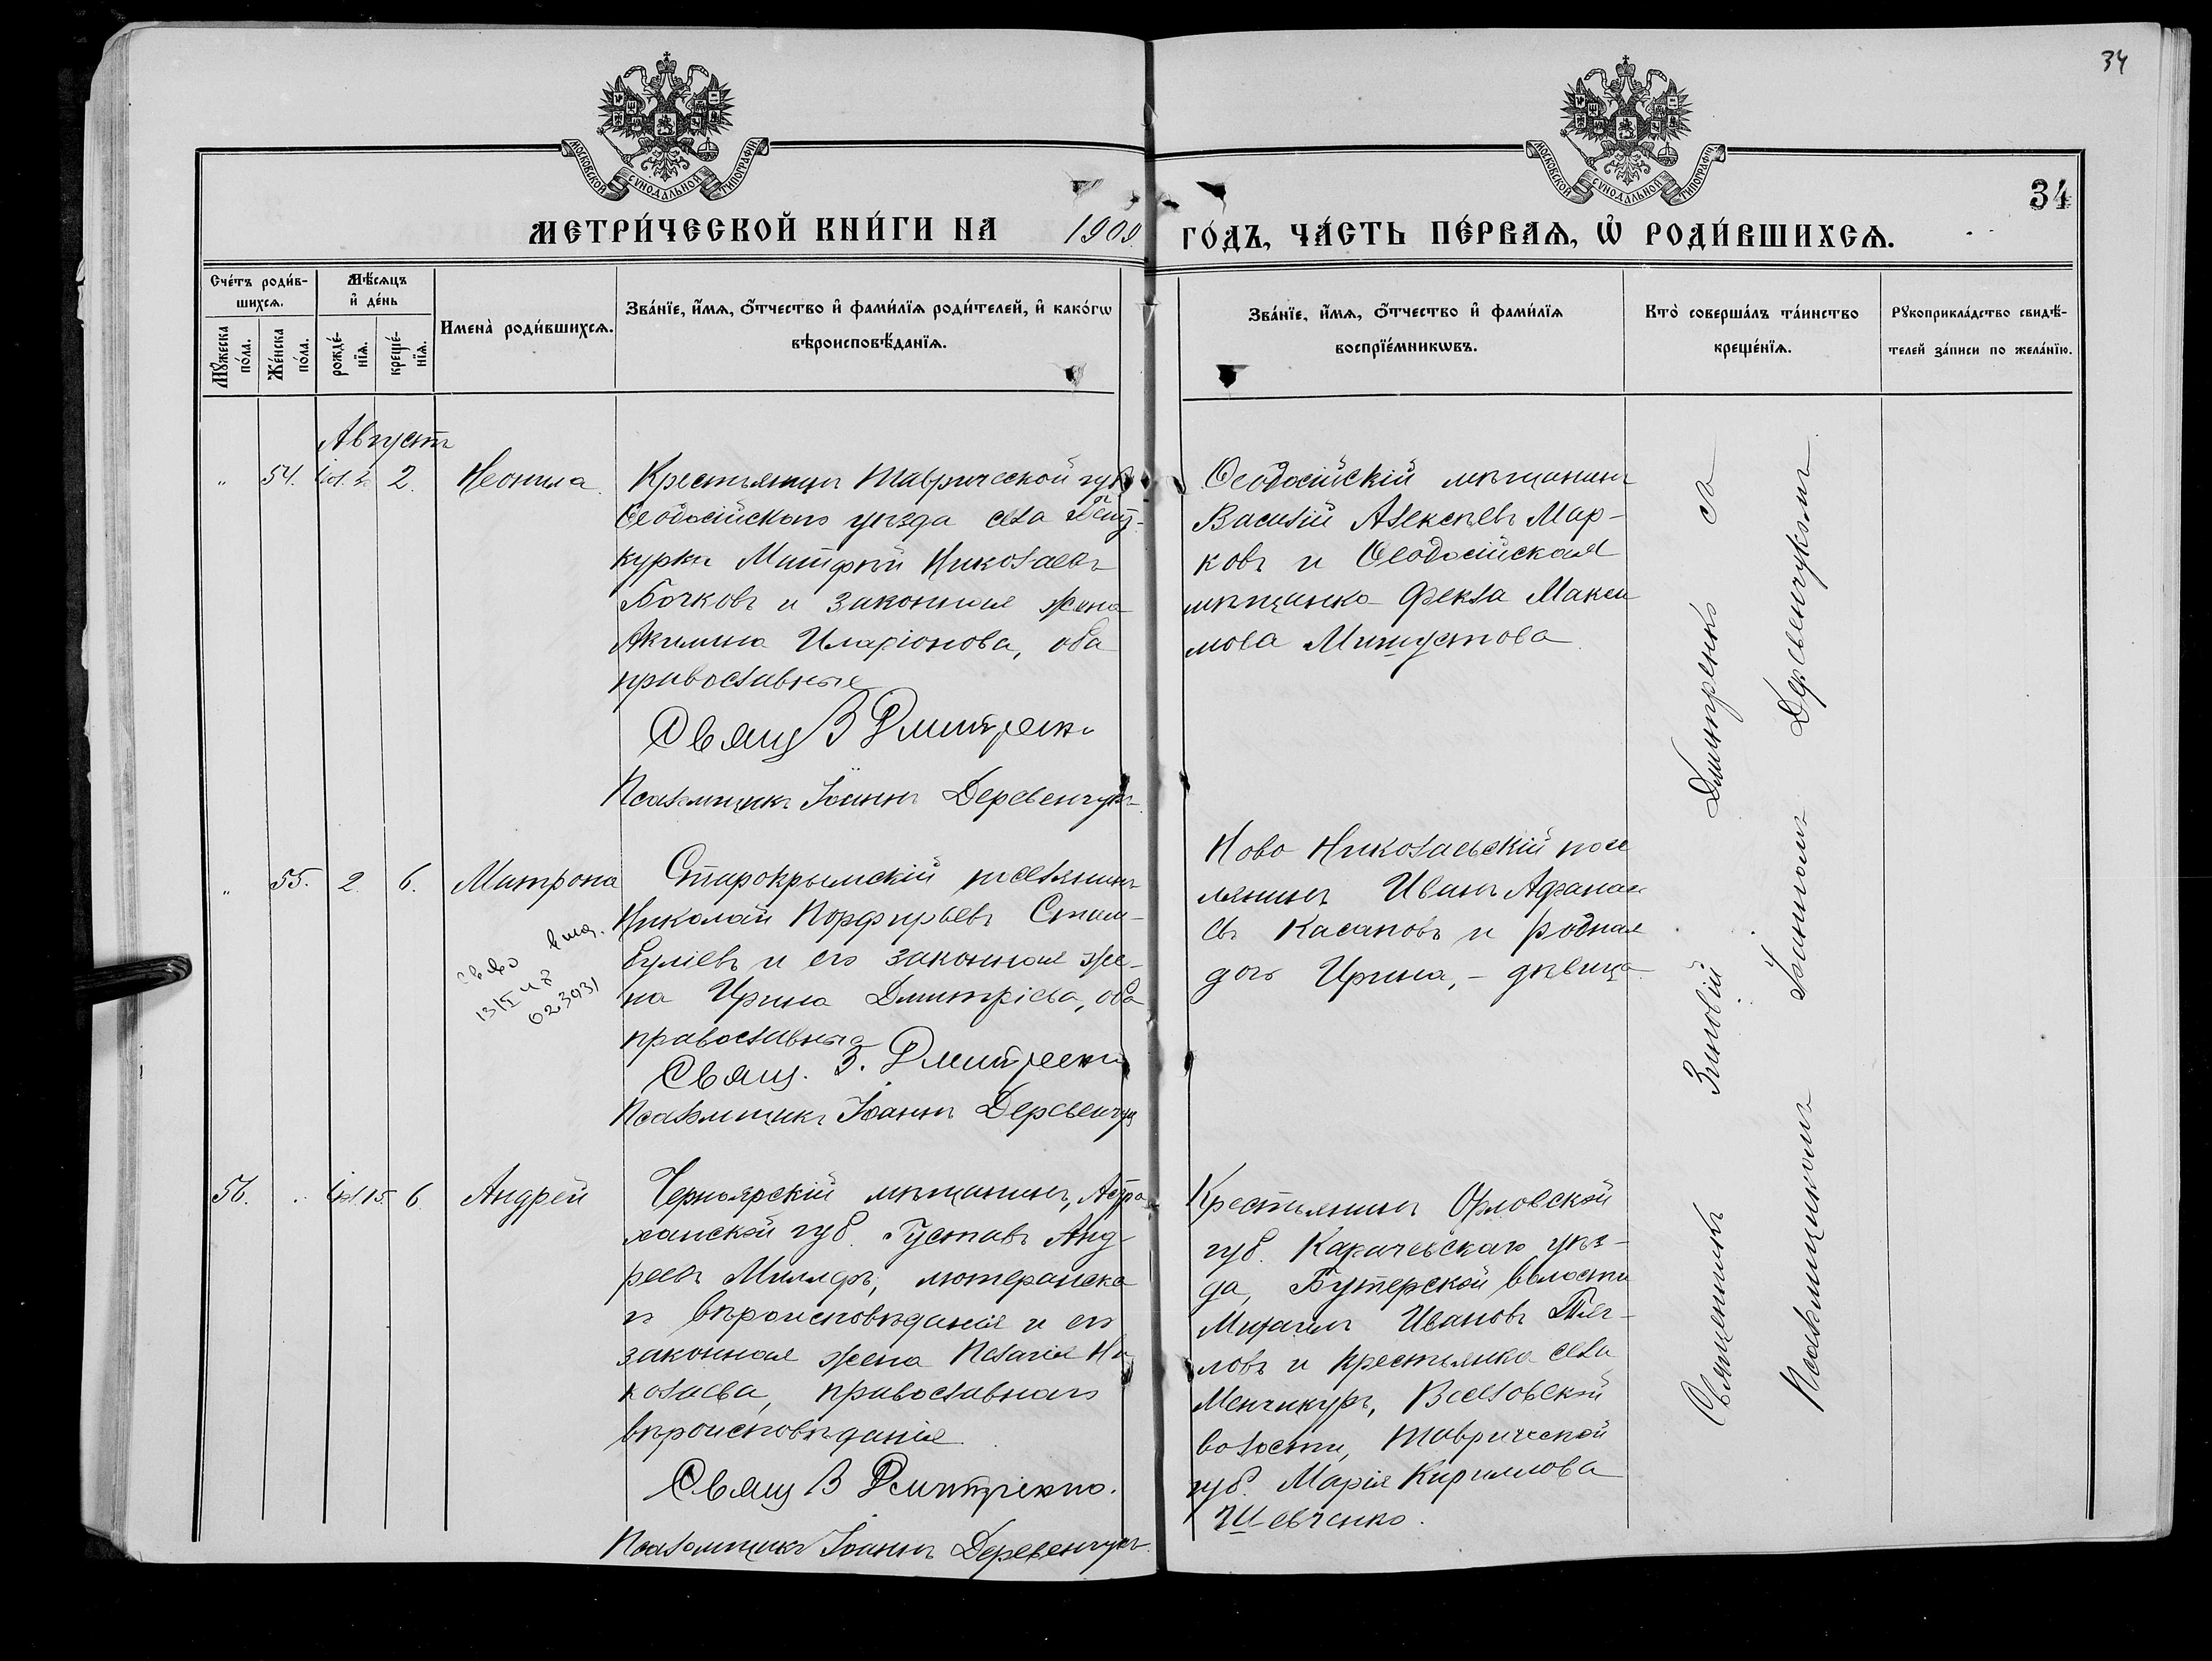 34
МОСКОВСКОЙ СѴНОДАЛЬНОЙ ТИПОГРАФІИ
МОСКОВСКОЙ СѴНОДАЛЬНОЙ ТИПОГРАФІИ
34
МЕТРИ́ЧЕСКОЙ КНИ́ГИ НА 1909 ГО́ДЪ, ЧА́СТЬ ПЕ́РВАѦ, Ѡ҆ РОДИ́ВШИХСѦ.
Сче́тъ роди́в-
шихсѧ.
Мꙋ́жеска
по́ла.
Же́нска
по́ла.
Мѣ́сѧцъ
и҆ де́нь
рожде́-
нїѧ.
креще́-
нїѧ.
Имена̀ роди́вшихсѧ.
Зва́нїе, и҆́мѧ, ѻ҆́тчество и҆ фами́лїѧ роди́телей, и҆ како́гѡ
вѣроисповѣ́данїѧ.
Зва́нїе, и҆́мѧ, ѻ҆́тчество и҆ фами́лїѧ
воспрїе́мникѡвъ.
Кто̀ соверша́лъ та́инство
креще́нїѧ.
Рꙋкоприкла́дство свидѣ́-
телей за́писи по жела́нїю.
Августъ
" 54. 2. Неонила.
Крестьянинъ Таврической губ
Ѳеодосійскаго уѣзда села
курки Митрофанъ Николаевъ
Бочковъ и законная жена
Акилина Иларіонова, оба
православные
Свящ З Дмитренко
Псаломщикъ Іоаннъ Деревенчукъ
Ѳеодосійскій мѣщанинъ
Василій Алексѣевъ Мар-
ковъ и Ѳеодосійская
мѣщанка Фекла Макси
мова Мишустова
" 55. 2. 6. Матрона
Старокрымскій поселянинъ
Николай Порфирьевъ Стам-
буліевъ и его законная же-
на Ирина Димитріева, оба
православные
Свящ. З. Дмитренко
Псаломщикъ Іоаннъ Деревенчук
Ново Николаевскій посе
лянинъ Иванъ Афанась
евъ Касаповъ и родная
дочь Ирина, - дѣвица
56. 15. 6. Андрей
Черноярскій мѣщанинъ, Астра
ханской губ. Густавъ Анд-
реевъ Миллеръ, лютеранска
го вѣроисповѣданія и его
законная жена Пелагія Ни
колаева, православнаго
вѣроисповѣданія
Свящ З Дмитренко.
Псаломщикъ Іоаннъ Деревенчукъ
Крестьянинъ Орловской
губ. Карачевскаго уѣз-
да, Бутерской волости
Михаилъ Ивановъ
ловъ и крестьянка села
Менчикуръ, Веселовской
волости, Таврической
губ. Марія Кириллова
Шевченко.
Священникъ Зиновій Димитренко съ
Псаломщикомъ Іоанномъ Деревенчукомъ